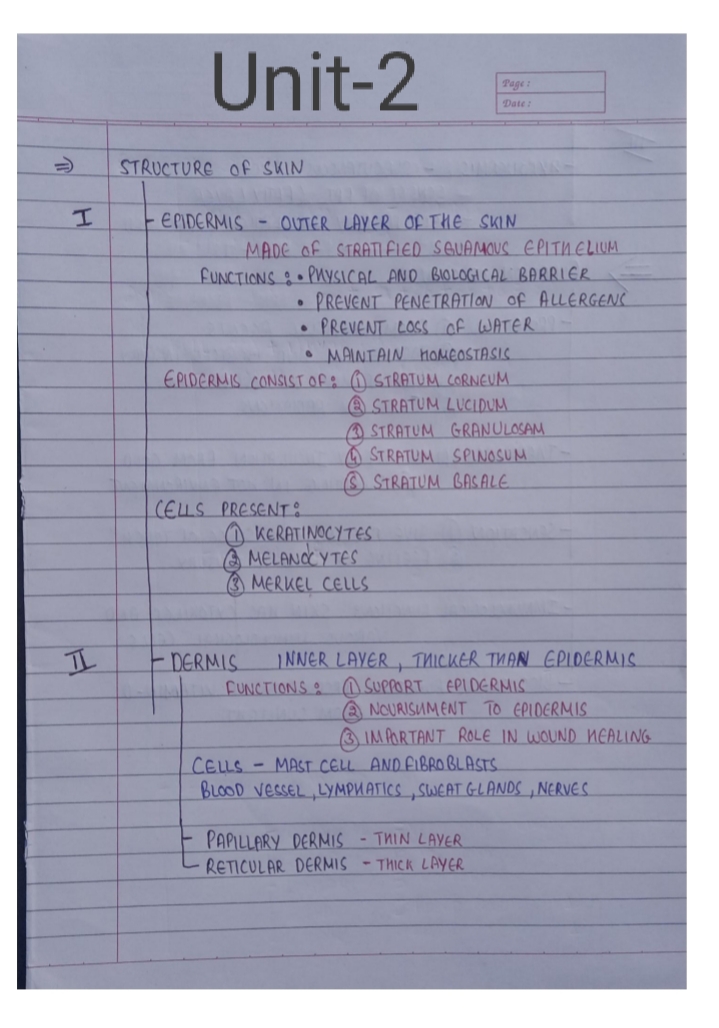 Unit-2
Page:
Date:
⇒ STRUCTURE OF SKIN
I EPIDERMIS - OUTER LAYER OF THE SKIN
MADE OF STRATIFIED SQUAMOUS EPITHELIUM
FUNCTIONS: • PHYSICAL AND BIOLOGICAL BARRIER
• PREVENT PENETRATION OF ALLERGENS
• PREVENT LOSS OF WATER
• MAINTAIN HOMEOSTASIS
EPIDERMIS CONSIST OF: ① STRATUM CORNEUM
② STRATUM LUCIDUM
③ STRATUM GRANULOSAM
④ STRATUM SPINOSUM
⑤ STRATUM BASALE
CELLS PRESENT:
① KERATINOCYTES
② MELANOCYTES
③ MERKEL CELLS
II DERMIS INNER LAYER, THICKER THAN EPIDERMIS
FUNCTIONS: ① SUPPORT EPIDERMIS
② NOURISHMENT TO EPIDERMIS
③ IMPORTANT ROLE IN WOUND HEALING
CELLS - MAST CELL AND FIBROBLASTS
BLOOD VESSEL, LYMPHATICS, SWEAT GLANDS, NERVES
PAPILLARY DERMIS - THIN LAYER
RETICULAR DERMIS - THICK LAYER